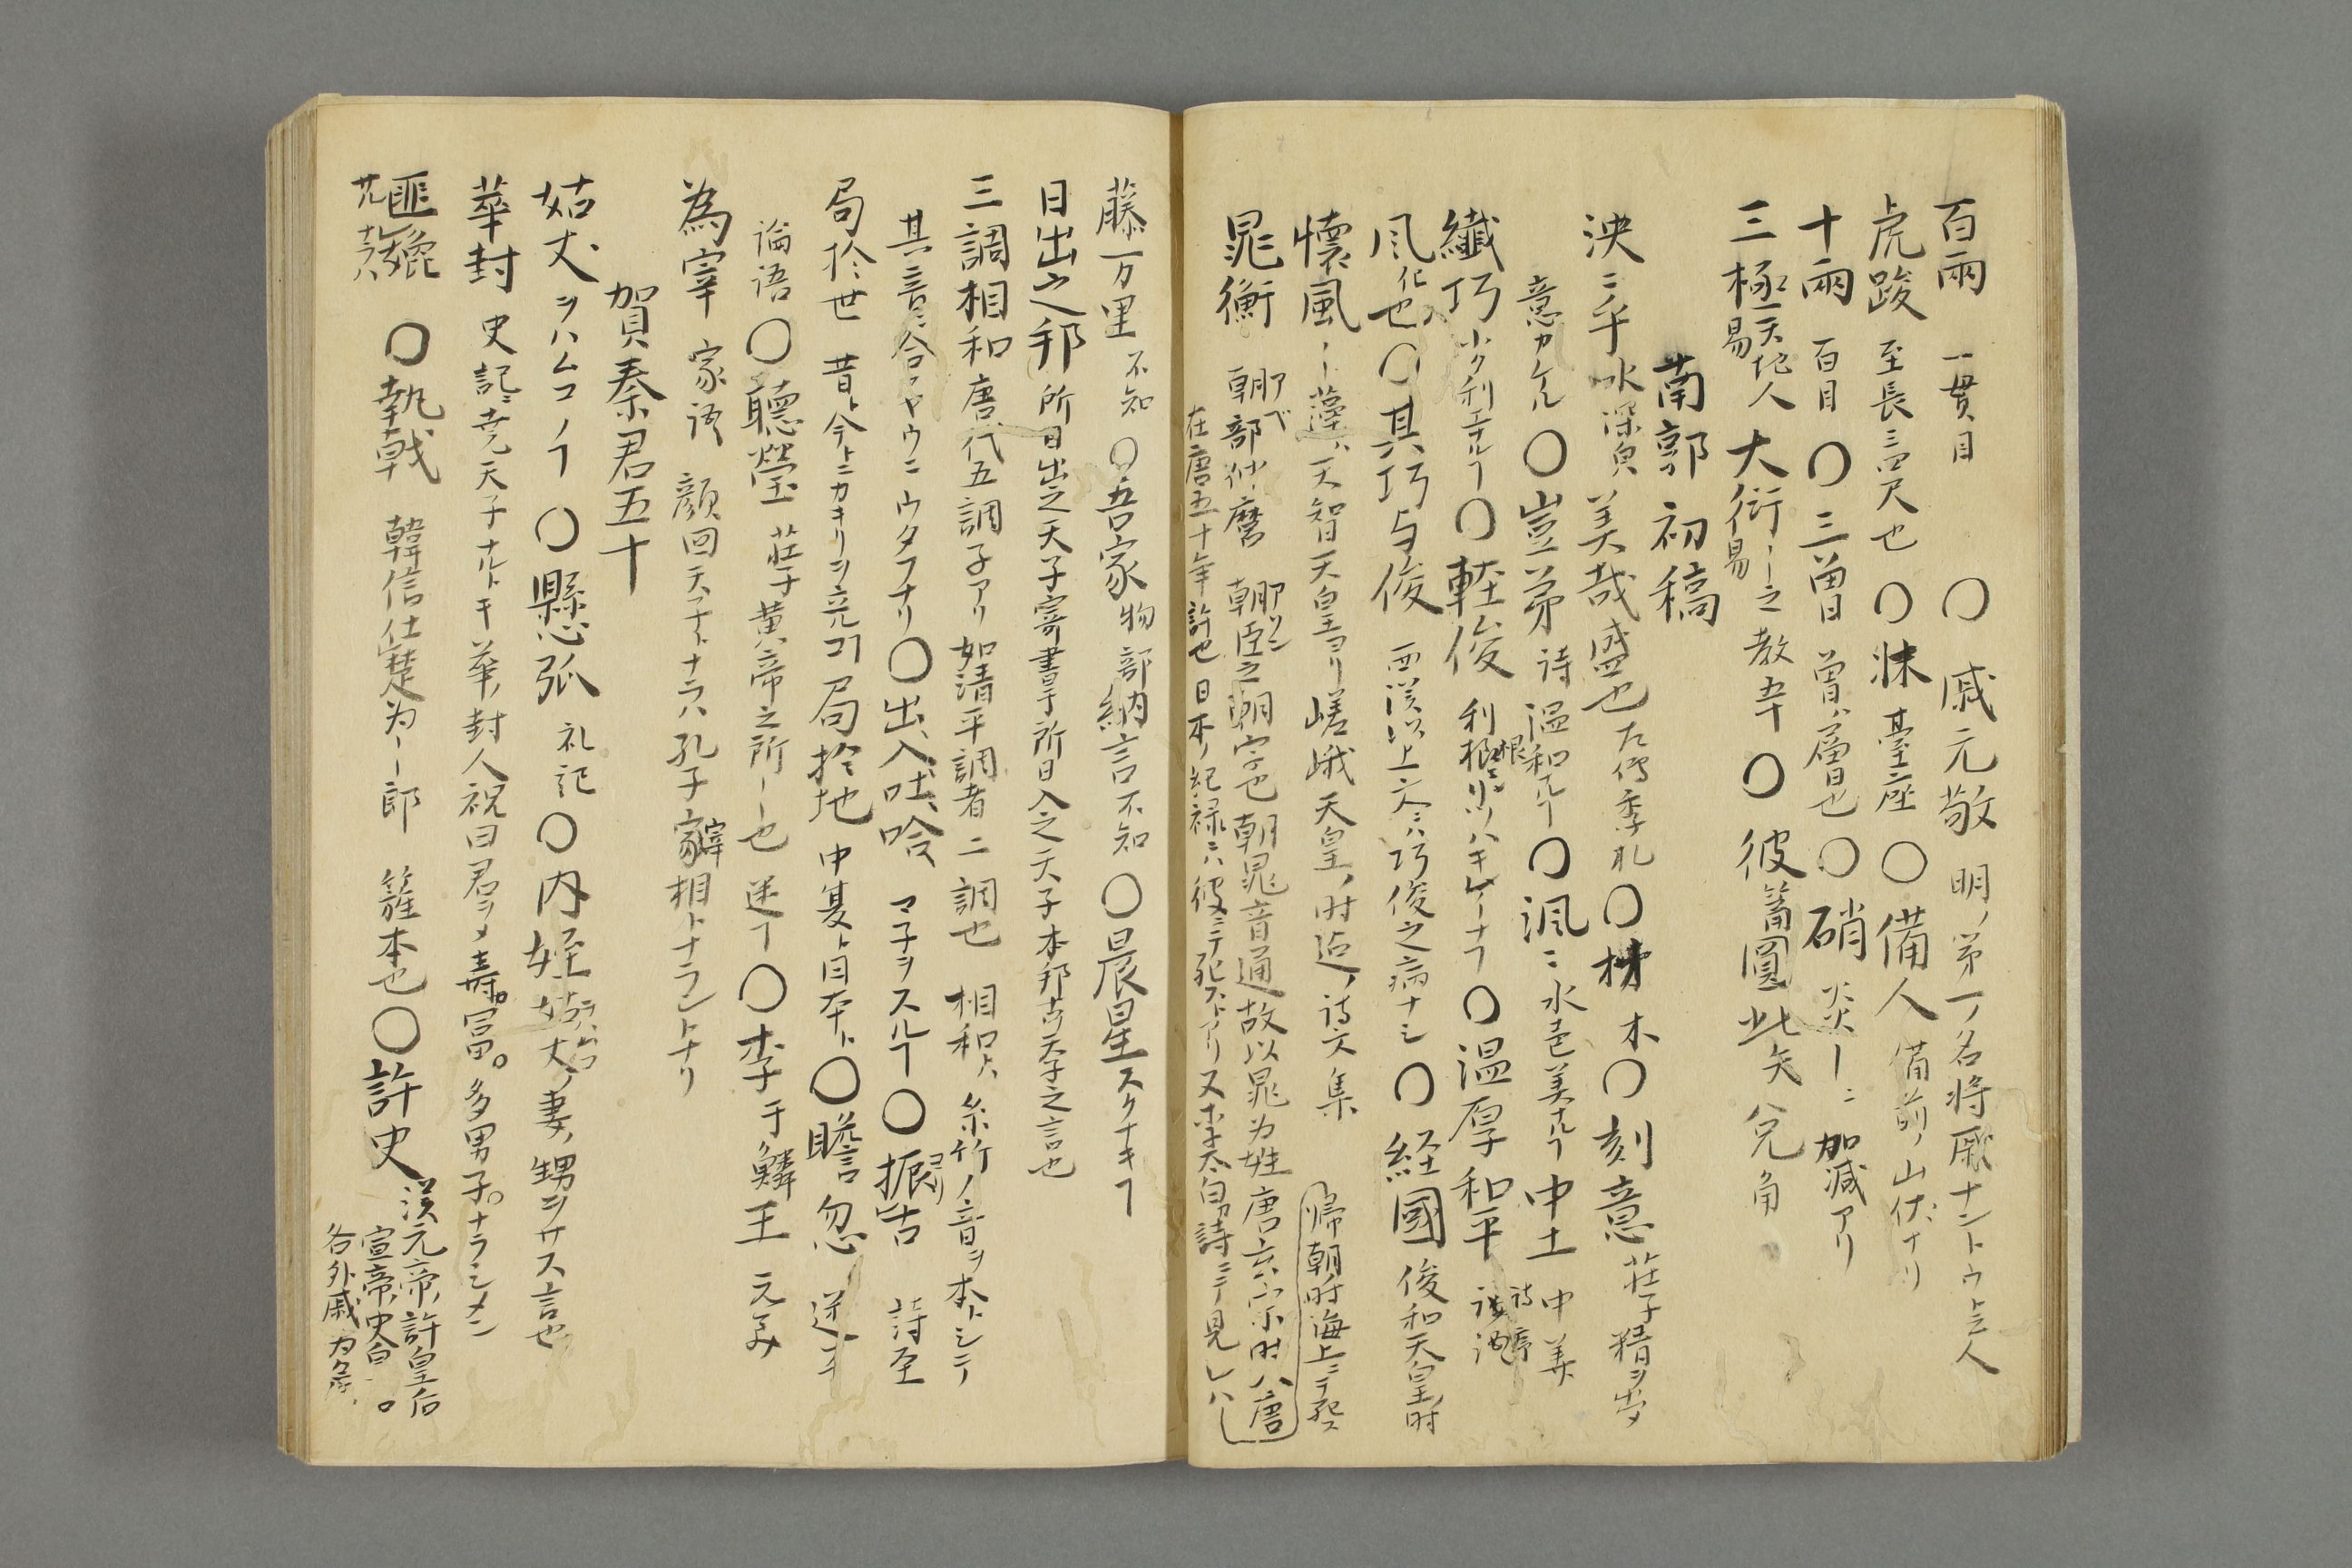 百兩 一貫目 ○戚元敬 明ノ第一ノ名将戚ナントウト云人
虎蹲 至長三四尺也 ○牀 臺座 ○備人 備前ノ山伏ナリ
十兩 百目 ○三曽 曽ハ層也 ○硝 炎ーニ加減アリ
三極 天地人 易 大衍ーー之教五十 易 ○彼篇圓此矢兌角
南郭初稿
泱ニ乎 水深皃 美哉盛也 左傳季札 ○材木 ○刻意 荘子精ヲ出タ
意カケル ○豈弟 詩 温和ナルヿ ○渢ニ 水声美ナルヿ 中土 中美
纖巧 小ク利エナルヿ ○軽俊 利根 スハキレーナヿ ○温厚和平 詩序
風化也 ○其巧与俊 西漢以上文ニハ巧俊之病ナシ ○経國 俊和天皇時
懷風ー藻ハ天智天皇ヨリ嵯峨天皇ノ時迄ノ詩文集 帰朝時海上ニテ死ス
晁衡 朝部仲麿 アベ 朝臣之朝字也朝晁音通故以晁为姓唐玄宗時ハ唐
在唐五十年許也日本ノ紀禄ニハ彼ニテ死ストアリ又李太白カ詩ニテ見レハ
藤万里 不知 ○吾家 物部 納言 不知 ○晨星 スクナキヿ
日出之邦 所日出之天子寄書于所日入之天子本邦古天子之言也
三調相和 唐代五調子アリ如清平調者二調也 相和ハ糸竹ノ音ヲ本トシテ
其音ニ合フヤウニウタフナリ ○出、入吐、哈 マネヲスルヿ ○振古 コヨリ 詩至
局於世 昔ト今トニカキリヲ立ヿ 局於地 中夏ト日本ト ○瞻忽 迷ヿ
論語 ○聽瑩 荘子黄帝之所ー也 迷ヿ ○李于鱗王元美
為宰 家語 顔回天子トナラハ孔子家宰相トナラントナリ
賀秦君五十
姑丈 ヲハムコノヿ ○懸弧 礼記 ○内姪 姑丈ノ妻ノ甥ヲサス言也
華封 史記ニ尭天子ナルトキ華ノ封人祝曰君ヲメ壽。冨。多男子。ナラシメン
○執戟 韓信仕楚为ー郎 籬本也 ○許史 漢元帝ノ許皇后
宣帝ノ史
各外戚为